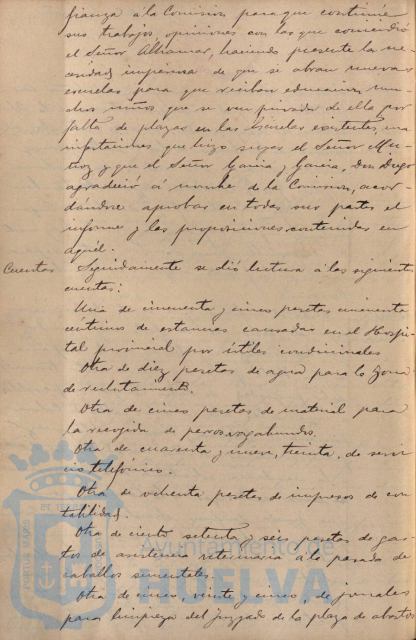 fianza á la Comisión para que continúe
sus trabajos, opiniones con las que coincidió
el Señor Alhamar, haciendo presente la ne
cesidad imperiosa de que se abran nuevas
escuelas para que reciban educación mu
chos niños que se ven privados de ella por
falta de plazas en las Escuelas existentes, ma
nifestaciones que hizo suyas el Señor Mu
ñoz y que el Señor Garcia y Garcia, Don Diego
agradeció á nombre de la Comisión, acor
dándose aprobar en todas sus partes el
informe y las proposiciones contenidas en
aquél.
Cuentas Seguidamente se dió lectura á las siguientes
cuentas:
Una de cincuenta y cinco pesetas cincuenta
centimos de estancias causadas en el Hospi
tal provincial por útiles condicionales
Otra de diez pesetas de agua para la Zona
de reclutamiento.
Otra de cinco pesetas de material para
la recogida de perros vagabundos.
Otra de cuarenta y nueve, treinta, de servi
cio telefónico.
Otra de ochenta pesetas de impresos de con
tabilidad.
Otra de ciento setenta y seis pesetas de gas
tos de asistencia veterinaria á la parada de
caballos sementales.
Otra de cinco, veinte y cinco, de jornales
para limpieza del juzgado de la plaza de abastos
PORTUS MARIS ET
Ayuntamiento de
HUELVA